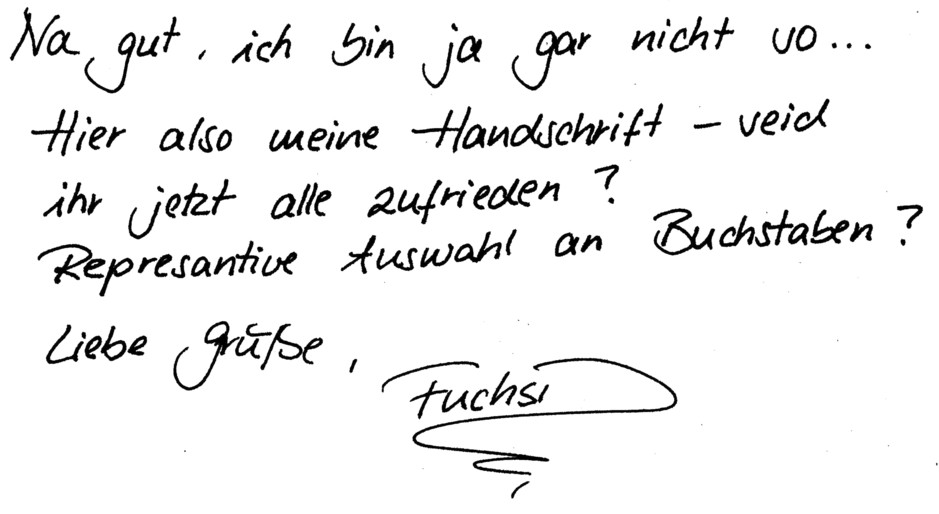 Na gut, ich bin ja gar nicht vo...
Hier also meine Handschrift - veid
ihr jetzt alle zufrieden?
Represantive Auswahl an Buchstaben?
Liebe Grüße,
Fuchsi